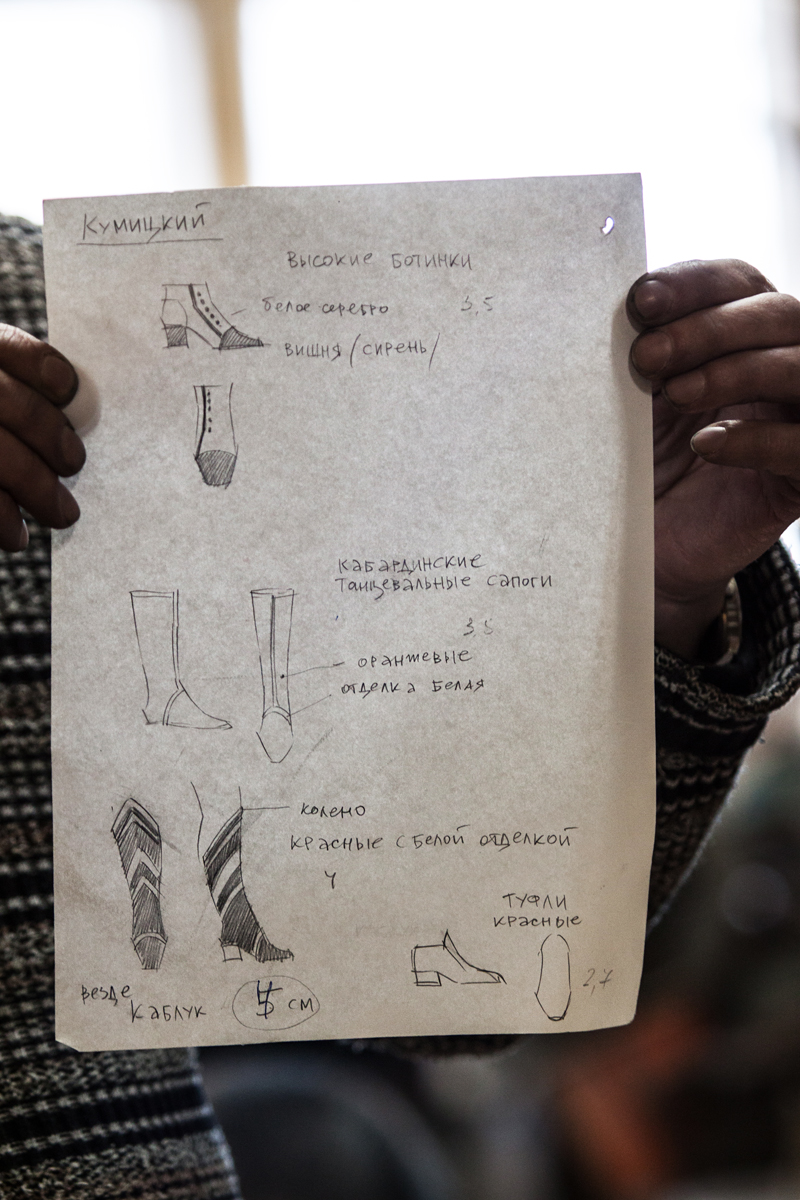 Кумицкий
высокие ботинки
белое серебро 3,5
вишня (сирень)
кабардинские
танцевальные сапоги
3,5
оранжевые
отделка белая
колено
красные с белой отделкой
4
туфли
красные
2,7
везде
каблук см